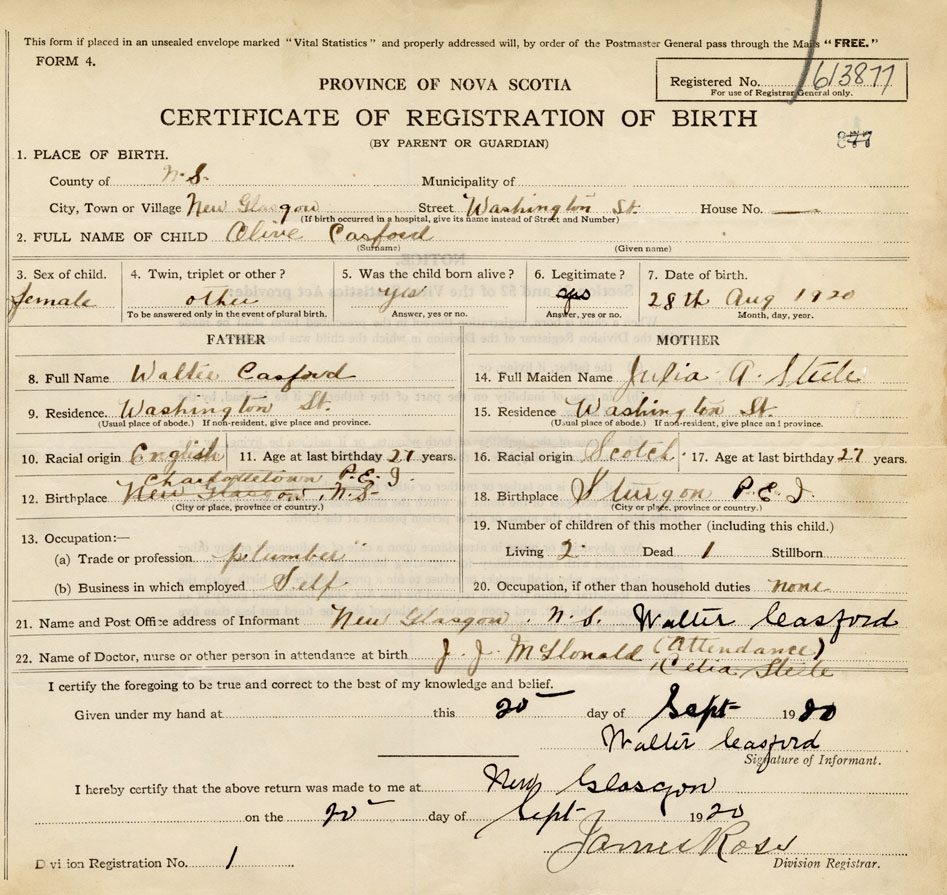 This form if placed in an unsealed envelope marked "Vital Statistics" and properly addressed will, by order of the Postmaster General pass through the Mails "FREE."
FORM 4.
PROVINCE OF NOVA SCOTIA
Registered No. 613877
For use of Registrar General only.
CERTIFICATE OF REGISTRATION OF BIRTH
877
(BY PARENT OR GUARDIAN)
1. PLACE OF BIRTH.
County of N.S. Municipality of
City, Town or Village New Glasgow Street Washington St. House No. —
(If birth occurred in a hospital, give its name instead of Street and Number)
2. FULL NAME OF CHILD Olive Casford
(Surname) (Given name)
3. Sex of child. 4. Twin, triplet or other? 5. Was the child born alive? 6. Legitimate? 7. Date of birth.
female other Yes yes 28th Aug 1920
To be answered only in the event of plural birth. Answer, yes or no. Answer, yes or no. Month, day, year.
FATHER MOTHER
8. Full Name Walter Casford 14. Full Maiden Name Julia A. Steele
9. Residence. Washington St. 15. Residence Washington St.
(Usual place of abode.) If non-resident, give place and province. (Usual place of abode.) If non-resident, give place and province.
10. Racial origin English 11. Age at last birthday 27 years. 16. Racial origin Scotch 17. Age at last birthday 27 years.
Charlottetown P.E.I.
12. Birthplace New Glasgow, N.S. 18. Birthplace Sturgon P.E.I
(City or place, province or country.) (City or place, province or country.)
13. Occupation:— 19. Number of children of this mother (including this child.)
(a) Trade or profession plumber Living 2 Dead 1 Stillborn
(b) Business in which employed Self 20. Occupation, if other than household duties none
21. Name and Post Office address of Informant New Glasgow. N.S. Walter Casford
22. Name of Doctor, nurse or other person in attendance at birth J. J. McDonald (Attendance)
Celia Steele
I certify the foregoing to be true and correct to the best of my knowledge and belief.
Given under my hand at this 20 day of Sept 1920
Walter Casford
Signature of Informant.
I hereby certify that the above return was made to me at New Glasgow
on the 20 day of Sept 1920
James Ross
Division Registration No. 1 Division Registrar.